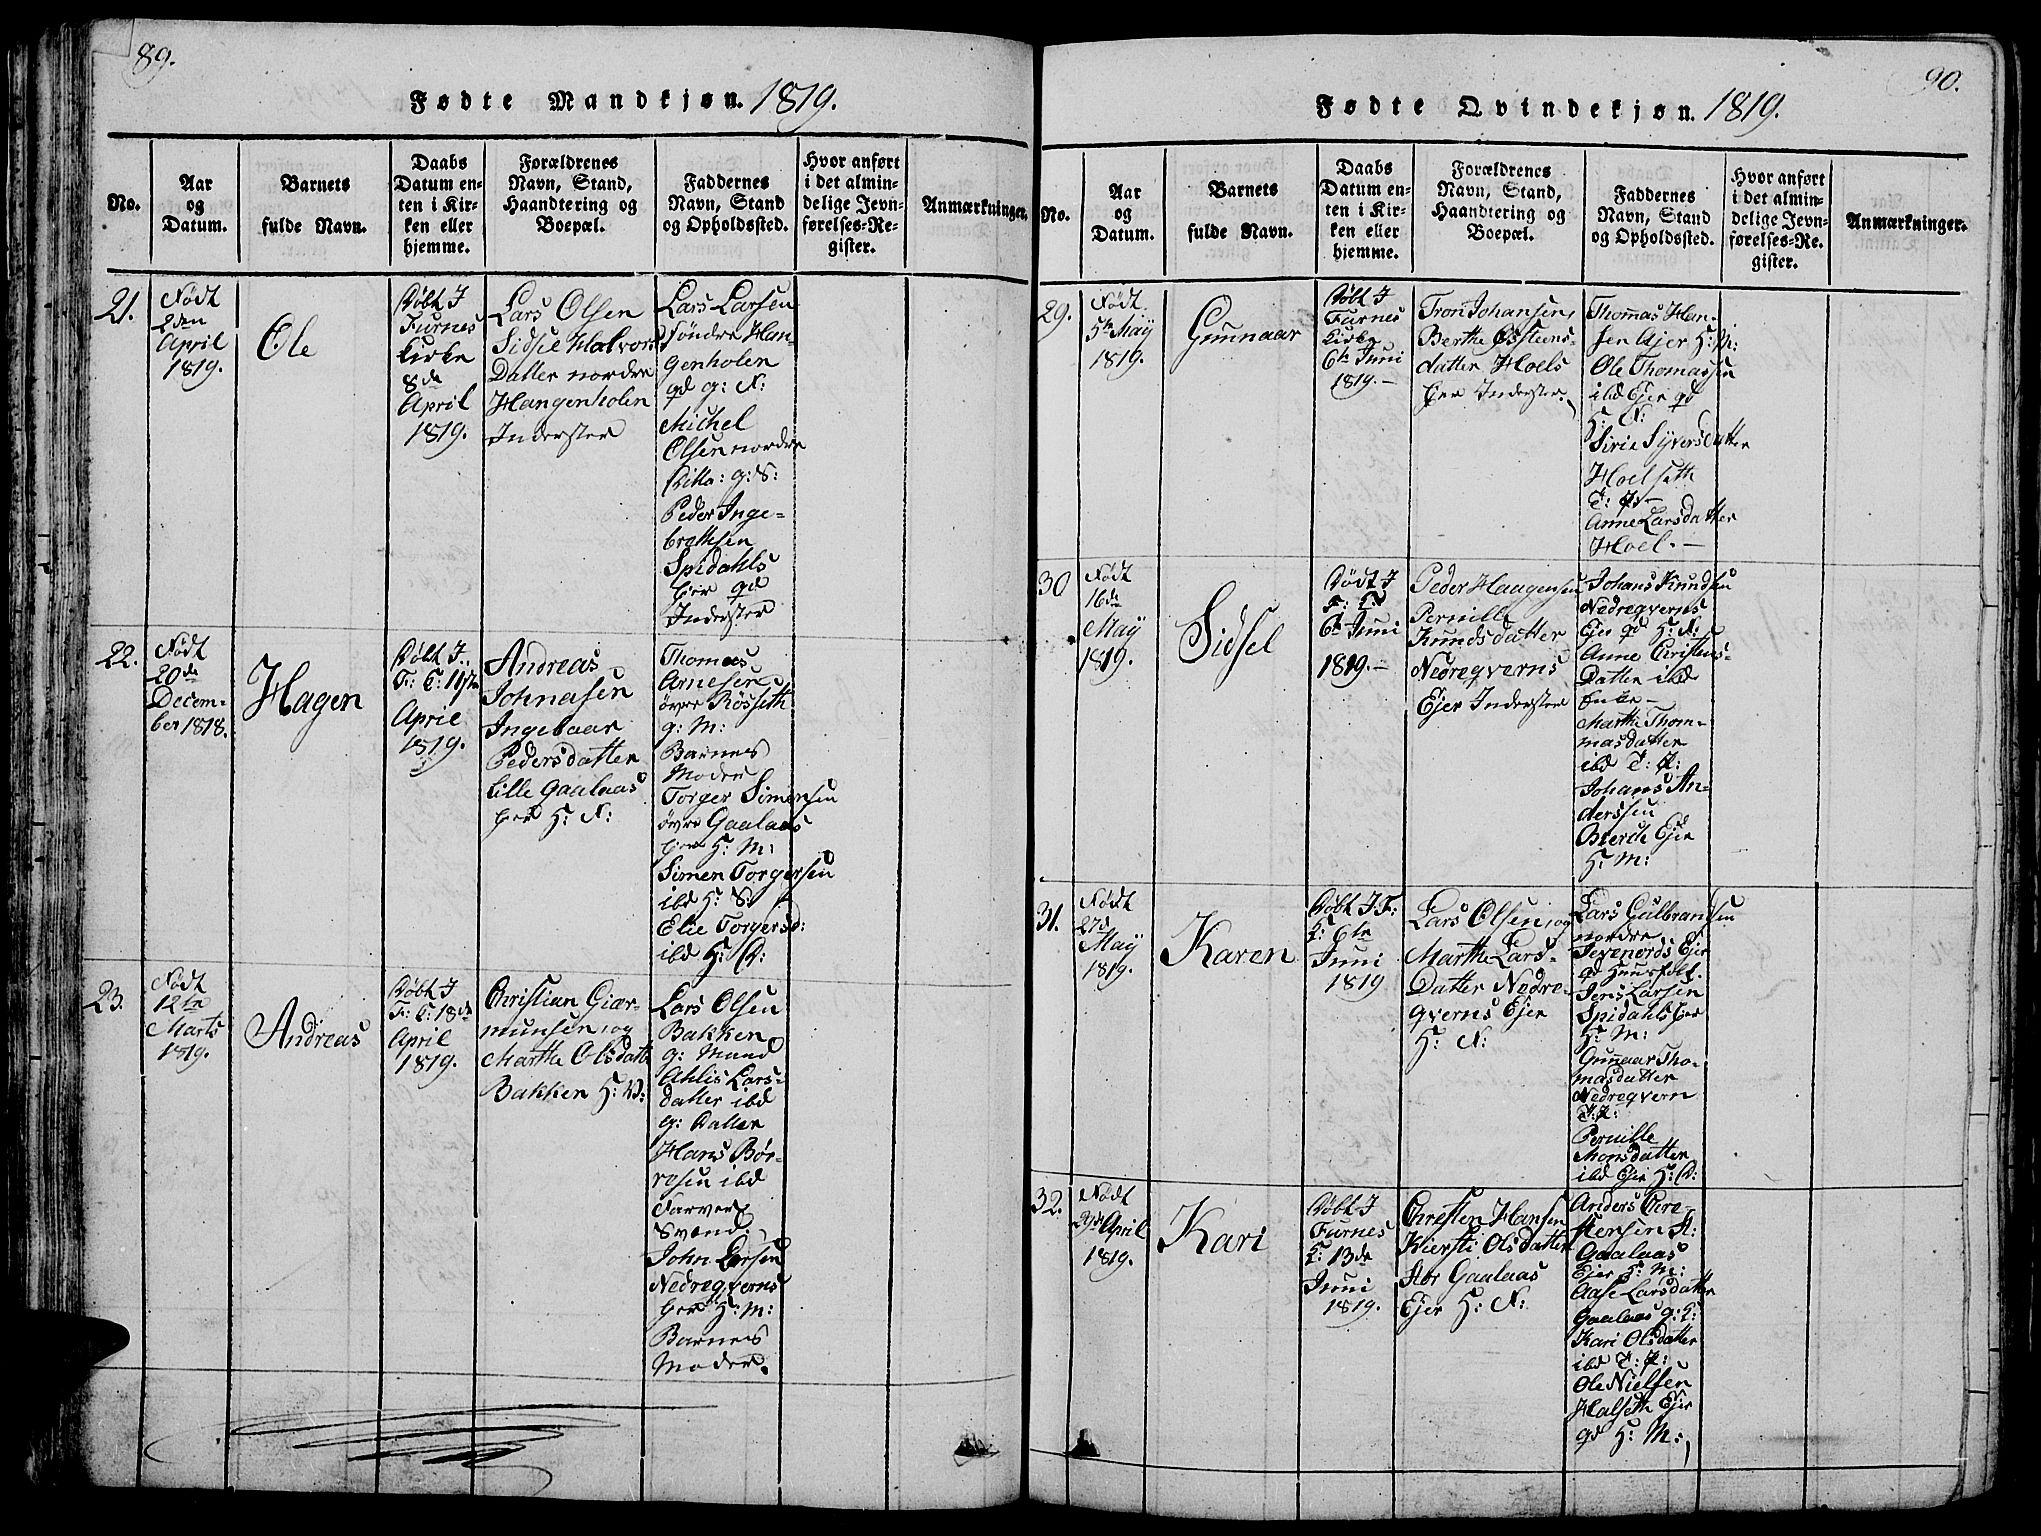 89.
Fødte Mandkjøn. 1819.
No.
Aar
og
Datum.
Barnets
fulde Navn.
Daabs
Datum en-
ten i Kir-
ken eller
hjemme.
Forældrenes
Navn, Stand,
Haandtering og
Boepæl.
Faddernes
Navn, Stand
og Opholdssted.
Hvor anført
i det almin-
delige Jevn-
førelses-Re-
gister.
Anmærkninger.
21.
Født
2den
April
1819.
Ole
Døbt I
Furnes
Kirke
8de
April
1819.
Lars Olsen
Sidsie Halvors
Datter nordre
Hangenholen
Inderster
Lars Larsen
Søndre Han-
genholen
gd g: N:
Michel
Olsen nordre
g: S:
Peder Inge-
brethsen
Spidahls
Eier gd
Inderster
22.
Født
20de
Decem-
ber 1818.
Hagen
Døbt I
F: K: 11te
April
1819.
Andreas
Johnasen
Ingebaar
Pedersdatter
Lille Gaalaas
Eier H: N:
Thomas
Arnesen
øvre Røsseth
g: M:
Barnets
Moder
Torger Simensen
øvre Gaalaas
Eier H: M:
Simen Torgersen
ibd H: S:
Elie Torgersd:
ibd H: D:
23.
Født
12te
Marts
1819.
Andreas
Døbt I
F: K: 18de
April
1819.
Christian Giær-
munsen, og
Marthe Olsdatter
Bakken H:
Lars Olsen
Bakken
g: Mand
Ahlis Lars-
datter ibd
g: Datter
Hans Bør-
resen ibd
Farver
Svend
John Larsen
Nedreqverns
Eier H: M:
Barnets
Moder.
90.
Fødte Qvindekjøn. 1819.
No.
Aar
og
Datum.
Barnets
fulde Navn.
Daabs
Datum en-
ten i Kir-
ken eller
hjemme.
Forældrenes
Navn, Stand,
Haandtering og
Boepæl.
Faddernes
Navn, Stand
og Opholdssted.
Hvor anført
i det almin-
delige Jevn-
førelses-Re-
gister.
Anmærkninger.
29.
Født
5te May
1819.
Gunnaar
Døbt I
Furnes
Kirke
6te Juni
1819.-
Tron Johansen,
Berthe Østens-
datter Hoels
Eier Inderster.
Thommas Han-
sen Ejer H:
Ole Thomassen
ibd Ejer gd
H: N:
Sirie Syversdatter
Hoelseth
T: P:-
Anne Larsdatter
Hoel.-
30
Født
16de
May
1819.
Sidsel
Døbt I
F: K:
6te Juni
1819.-
Peder Haagensen
Pernille
Knudsdatter
Nedreqverns
Ejer Inderster
Johans Knudsen
Nedreqverns
Ejer gd H: N:
Anne Christens-
Datter ibd
Enke-
Marthe Thom-
masdatter
ibd T: P:
Johans An-
derssen
Bierche Ejer
H: M:
31.
Født
27d
May
1819.
Karen
Døbt I F:
K: 6te
Juni
1819
Lars Olsen, og
Marthe Lars-
Datter Nedre-
qverns Ejer
H: N:
Lars Gulbrandsen
nordre
Jevenords Ejer
gd Huusfolk.
Jens Larsen
Spidahls Eier
H: M:
Gunnaar Tho-
masdatter
Nedreqvern
T: P:
Pernille
Monsdatter
ibd Ejer H: D:
32.
Født
April
1819.
Kari
Døbt I
Furnes
K: 13de
Juni
1819.
Christen Hansen
Kiersti Olsdatter
Stor Gaalaas
Ejer H: N:
Anders Chre-
stensen St:
Gaalaas
Ejer H: M:
Aase Larsdatter
Gaalaas g: K:
Kari Olsdatter
ibd T: P:
Ole Nielsen
Halseth Ejer
gd H: M: